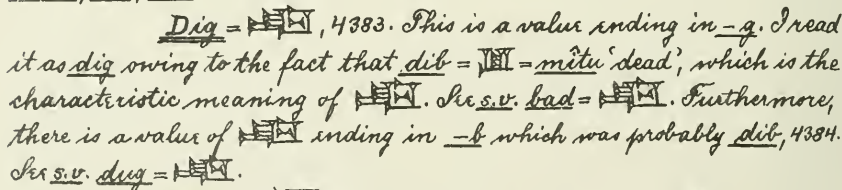 Dig = , 4383. This is a value ending in -g. I read
it as dig owing to the fact that dib = = mîtu 'dead', which is the
characteristic meaning of . See s.v. bad = . Furthermore,
there is a value of ending in -b which was probably dib, 4384.
See s.v. dug = .